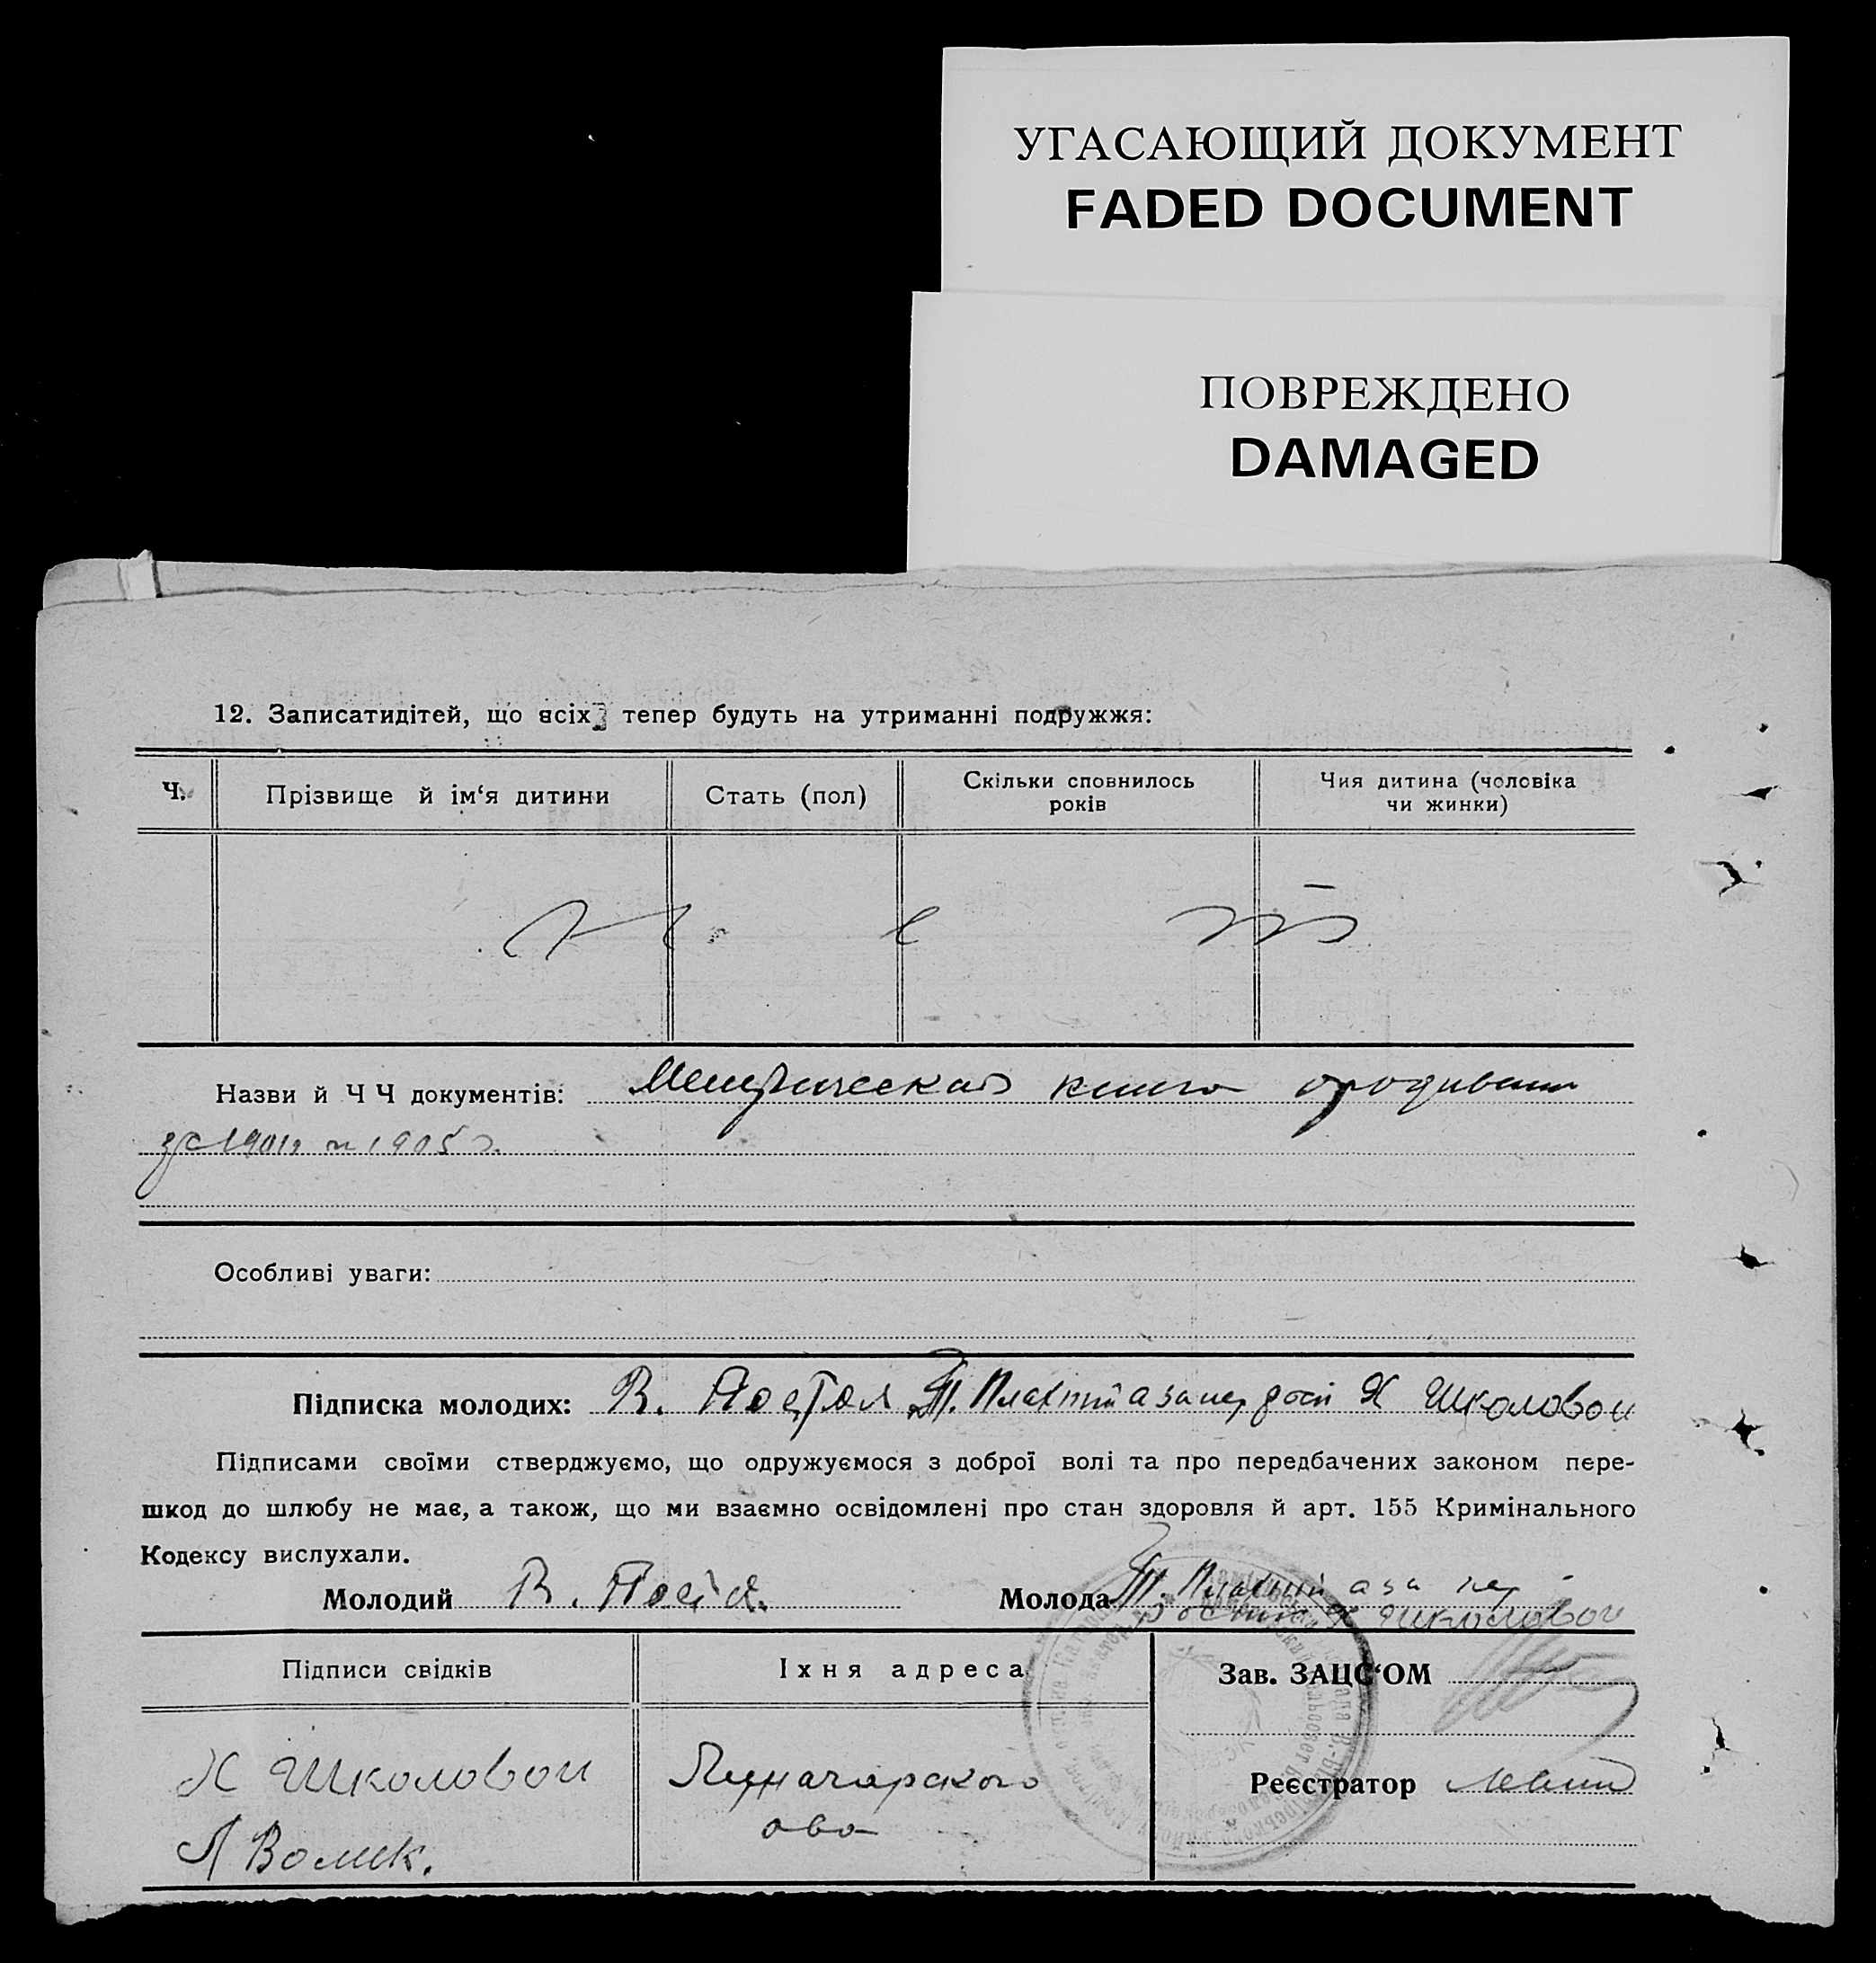 УГАСАЮЩИЙ ДОКУМЕНТ
FADED DOCUMENT
ПОВРЕЖДЕНО
DAMAGED
12. Записатидітей, що всіх тепер будуть на утриманні подружжя:
Ч.
Прізвище й ім‘я дитини
Стать (пол)
Скільки сповнилось
років
Чия дитина (чоловіка
чи жинки)
Н е т
Назви й Ч Ч документів: Метрическая книга
за 1901 и 1905 г.
Особливі уваги:
Підписка молодих: В. Постол Т. а за нер Х Школовои
Підписами своїми стверджуємо, що одружуємося з доброї волі та про передбачених законом пере-
шкод до шлюбу не має, а також, що ми взаємно освідомлені про стан здоровля й арт. 155 Кримінального
Кодексу вислухали.
Молодий В.
Молода Т. а за нер
Х Школовои
Підписи свідків
Їхня адреса
Зав. ЗАЦС‘ОМ
Х Школовои
Луначарского
Реєстратор